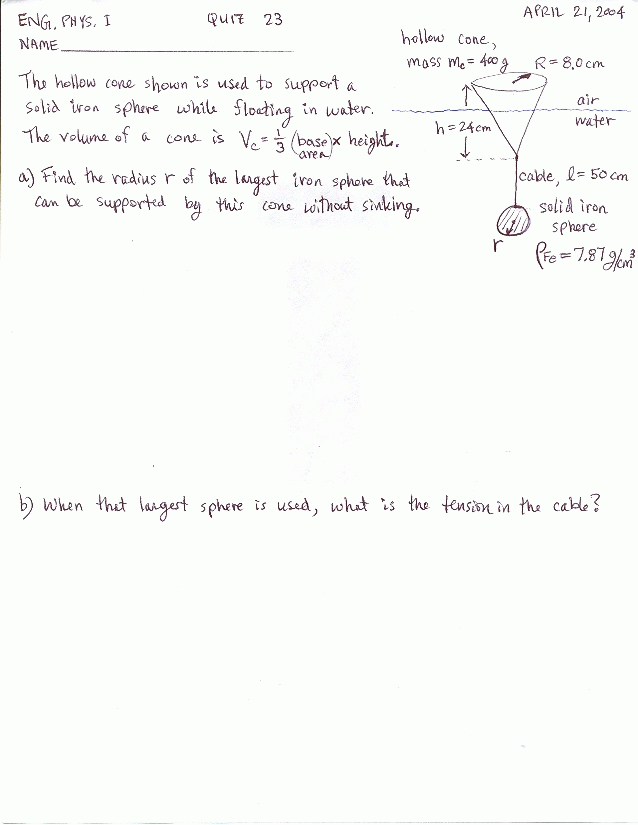 ENG. PHYS. I QUIZ 23 APRIL 21, 2004
NAME
hollow cone,
mass Mc = 400 g R = 8.0 cm
The hollow cone shown is used to support a
solid iron sphere while floating in water.
The volume of a cone is Vc = 1/3 (base area) x height.
a) Find the radius r of the largest iron sphere that
can be supported by this cone without sinking.
air
water
h = 24 cm
cable, l = 50 cm
solid iron
sphere
r
ρFe = 7.87 g/cm³
b) When that largest sphere is used, what is the tension in the cable?